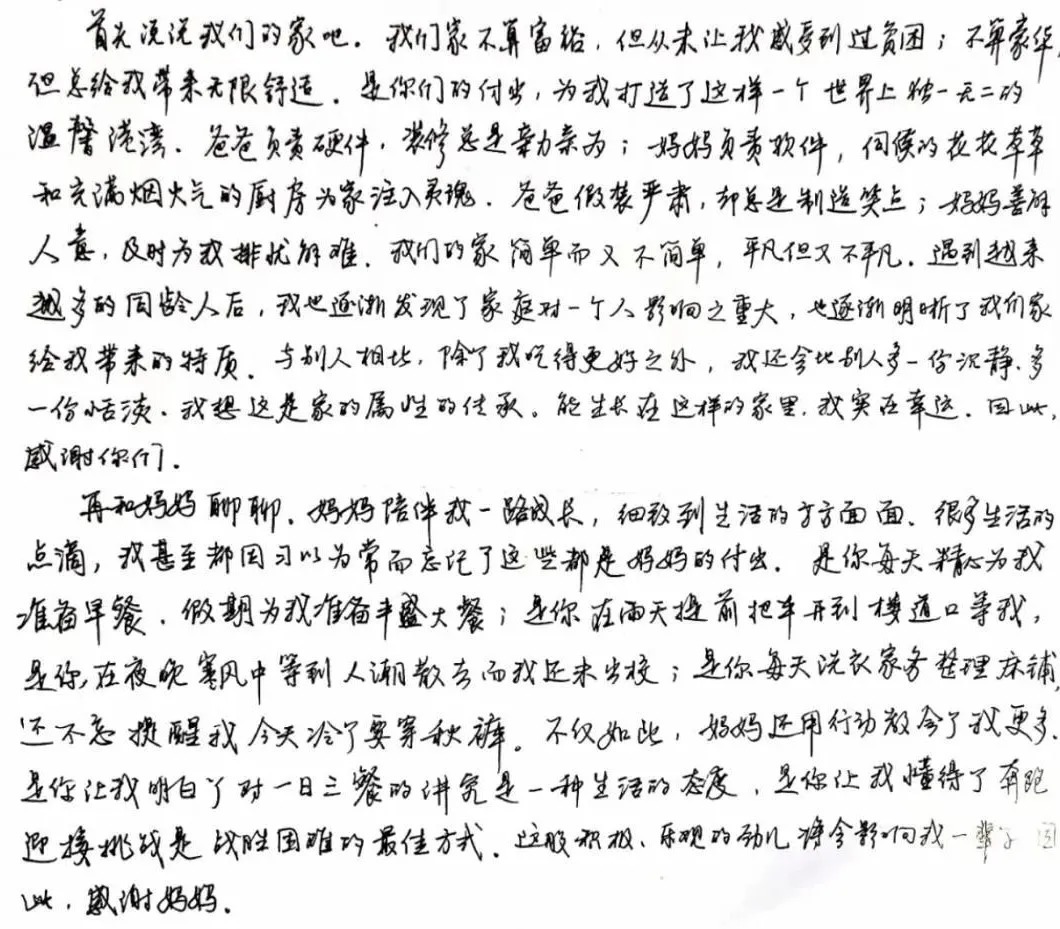 首先说说我们的家吧。我们家不算富裕，但从未让我感受到过贫困；不算豪华，
但总给我带来无限舒适。是你们的付出，为我打造了这样一个世界上独一无二的
温馨港湾。爸爸负责硬件，装修总是亲力亲为；妈妈负责软件，伺候的花花草草
和充满烟火气的厨房为家注入灵魂。爸爸假装严肃，却总是制造笑点；妈妈善解
人意，及时为我排忧解难。我们的家简单而又不简单，平凡但又不平凡。遇到越来
越多的同龄人后，我也逐渐发现了家庭对一个人影响之重大，也逐渐明晰了我们家
给我带来的特质。与别人相比，除了我吃得更好之外，我还会比别人多一份沉静，多
一份恬淡。我想这是家的属性的传承。能生长在这样的家里，我实在幸运。因此，
感谢你们。
再和妈妈聊聊。妈妈陪伴我一路成长，细致到生活的方方面面。很多生活的
点滴，我甚至都因习以为常而忘记了这些都是妈妈的付出。是你每天精心为我
准备早餐，假期为我准备丰盛大餐；是你在雨天提前把车开到楼道口等我，
是你在夜晚寒风中等到人潮散去而我还未出校；是你每天洗衣家务整理床铺，
还不忘提醒我今天冷了要穿秋裤。不仅如此，妈妈还用行动教会了我更多。
是你让我明白了对一日三餐的讲究是一种生活的态度，是你让我懂得了奔跑
迎接挑战是战胜困难的最佳方式。这股积极、乐观的劲儿将会影响我一辈子 因
此，感谢妈妈。